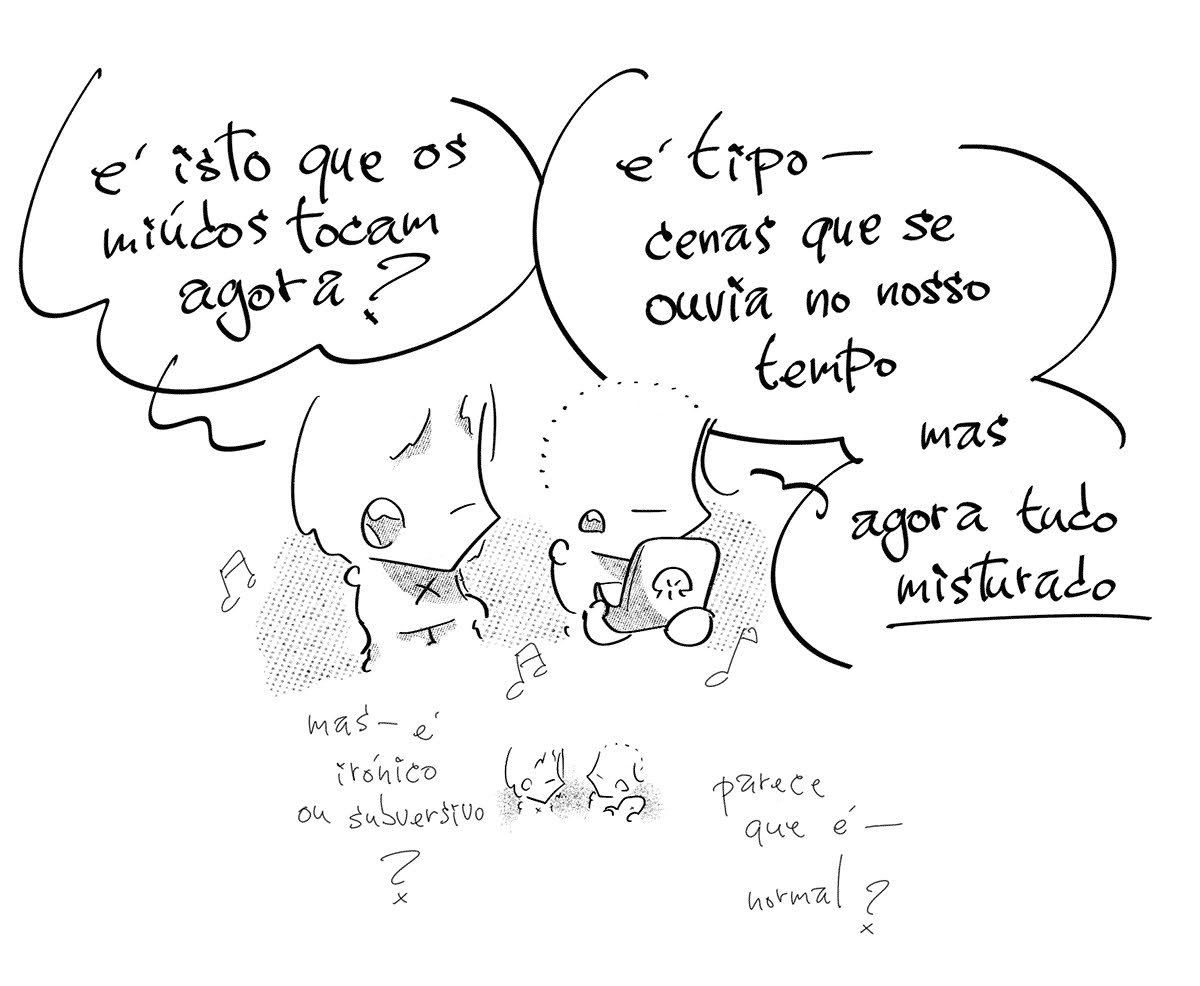 é isto que os
miúdos tocam
agora?
é tipo —
cenas que se
ouvia no nosso
tempo
mas
agora tudo
misturado
mas — é
irónico
ou subversivo
?
parece
que é —
normal?